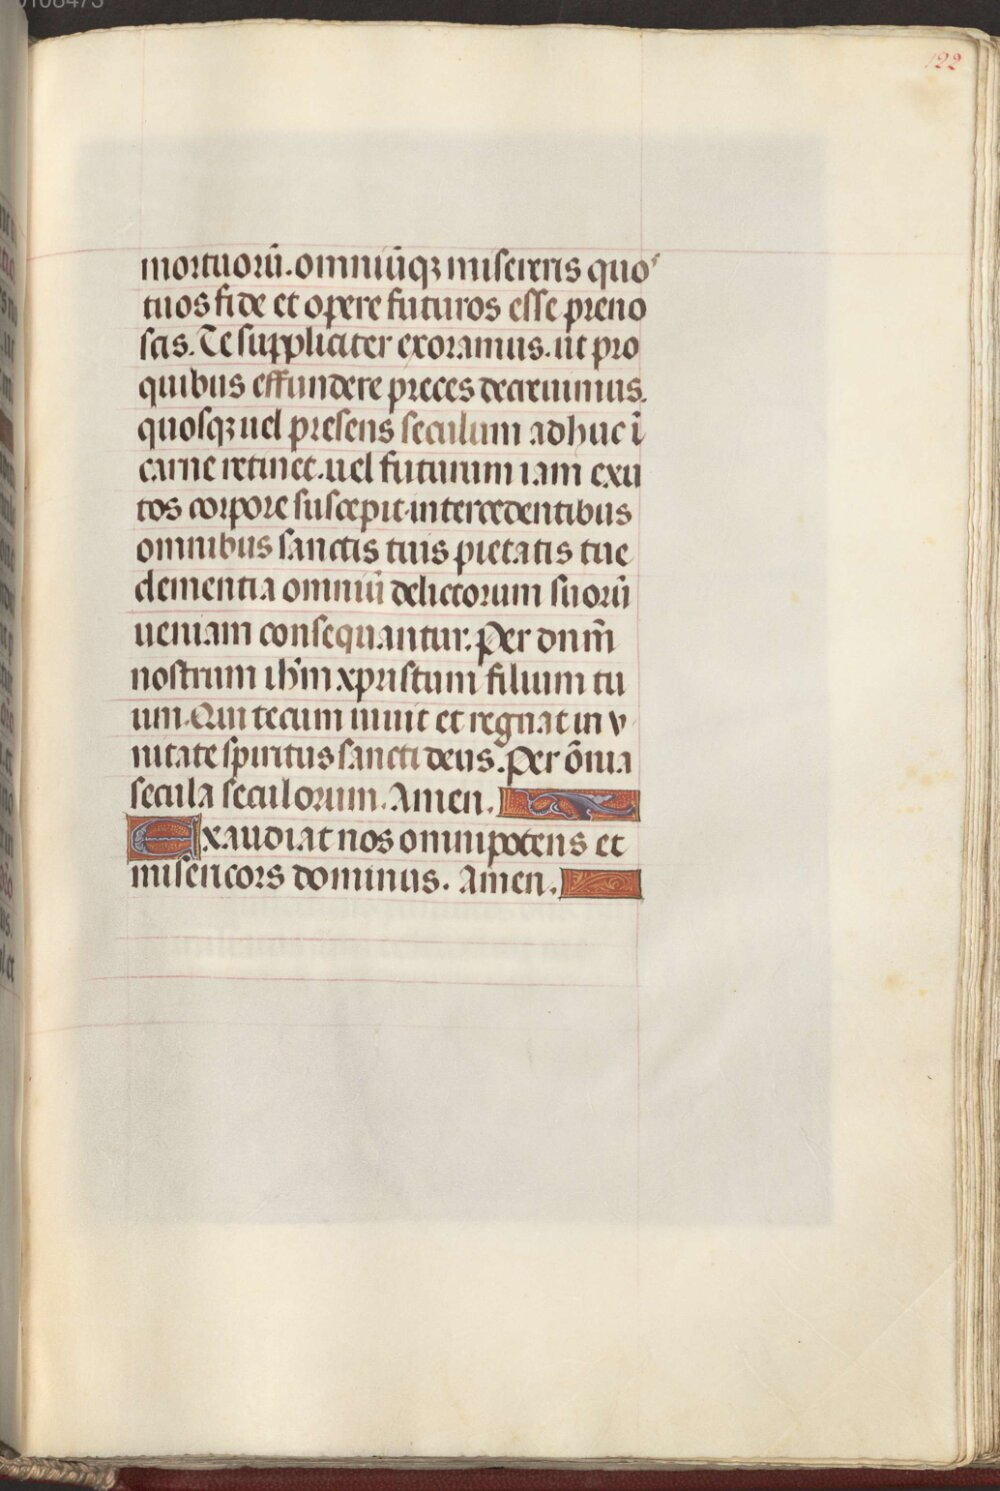 122
mortuorū. omniūqꝫ misereris quo'
tuos fide et opere futuros esse preno
scis. Te suppliciter exoramus. ut pro
quibus effundere preces decreuimus.
quosqꝫ uel presens seculum adhuc ī
carne retinet. uel futurum iam exu
tos corpore suscepit. intercedentibus
omnibus sanctis tuis pietatis tue
clementia omniū delictorum suorū
ueniam consequantur. Per dnm̄
nostrum ihm̄ xpristum filium tu
um. Qui tecum uiuit et regnat in v
nitate spiritus sancti deus. Per ōnia
secula seculorum. Amen.
Exaudiat nos omnipotens et
misericors dominus. Amen.